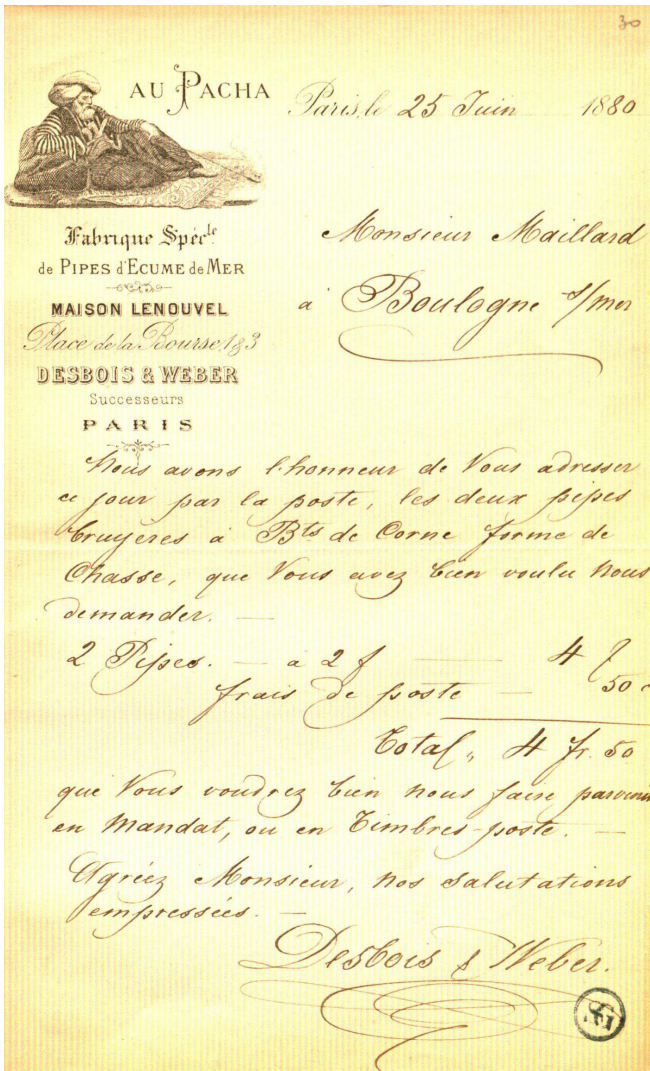 30
AU PACHA
Paris, le 25 Juin 1880
Fabrique Spéc.le
de PIPES d'ECUME de MER
MAISON LENOUVEL
Place de la Bourse, 1 & 3
DESBOIS & WEBER
Successeurs
PARIS
Monsieur Maillard
à Boulogne s/mer
Nous avons l'honneur de Vous adresser
ce jour par la poste, les deux pipes
bruyères à Bts de Corne forme de
Chasse, que Vous avez bien voulu Nous
demander. —
2 Pipes. — à 2 f — 4 f
frais de poste — 50 c
Total „ 4 fr. 50
que Vous voudrez bien nous faire parvenir
en Mandat, ou en Timbres-poste. —
Agréez Monsieur, nos salutations
empressées. —
Desbois & Weber.